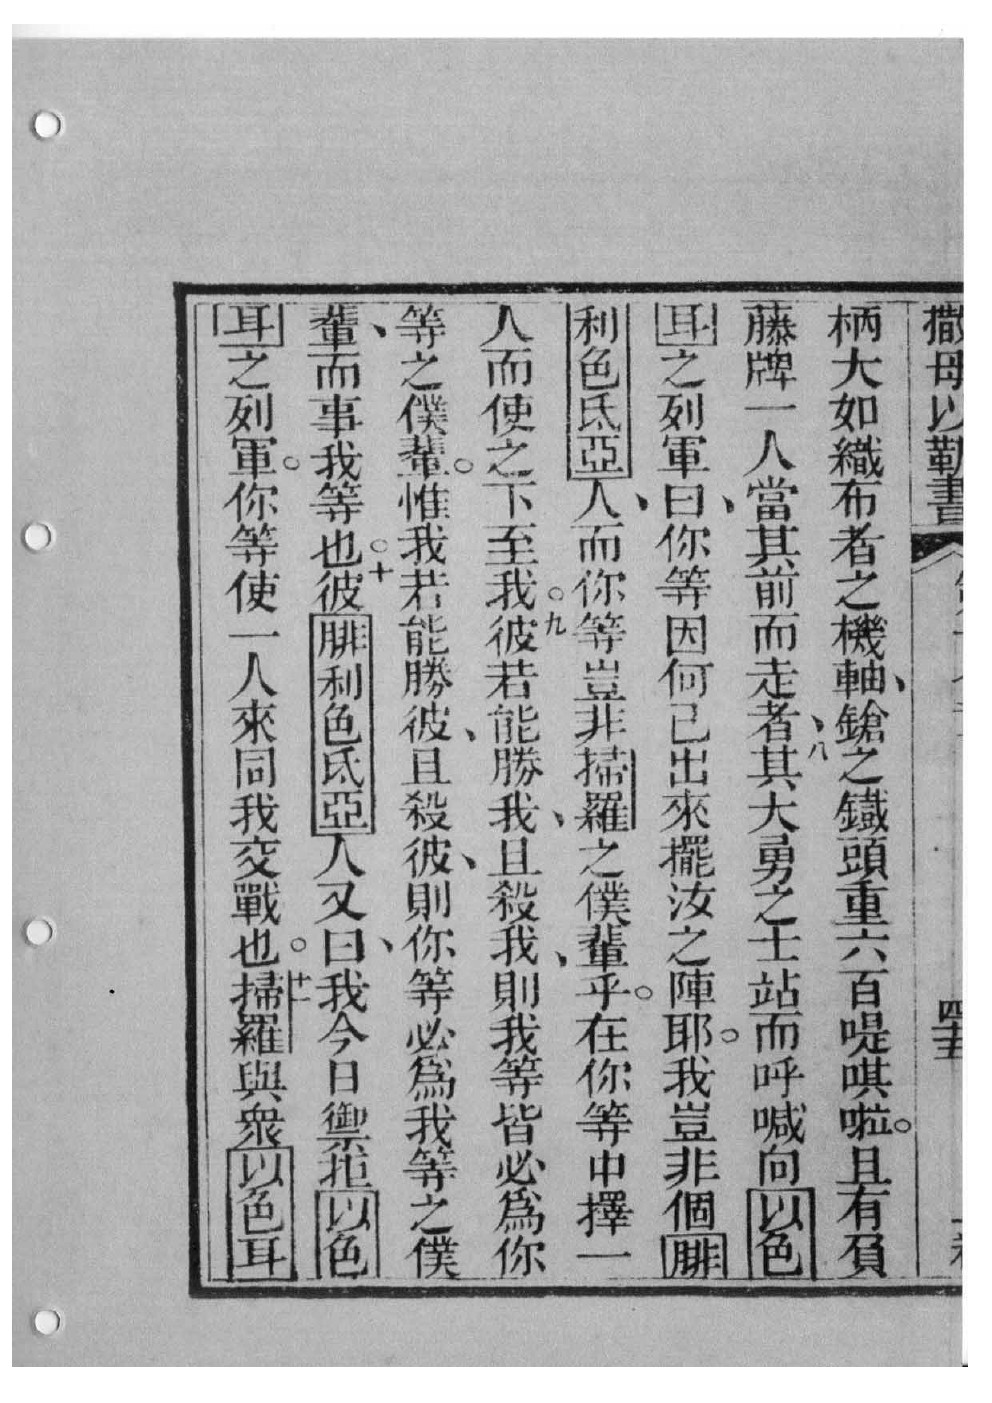 撒母以勒書
四五
柄大如織布者之機軸、鎗之鐵頭重六百㖷唭啦。且有負
藤牌一人當其前而走者、八其大勇之士站而呼喊向以色
耳之列軍曰、你等因何已出來擺汝之陣耶。我豈非個腓
利色氐亞人、而你等豈非掃羅之僕輩乎。在你等中擇一
人而使之下至我。九彼若能勝我、且殺我、則我等皆必為你
等之僕輩。惟我若能勝彼、且殺彼、則你等必為我等之僕
輩、而事我等也。十彼腓利色氐亞人又曰、我今日禦拒以色
耳之列軍。你等使一人來同我交戰也。十一掃羅與眾以色耳